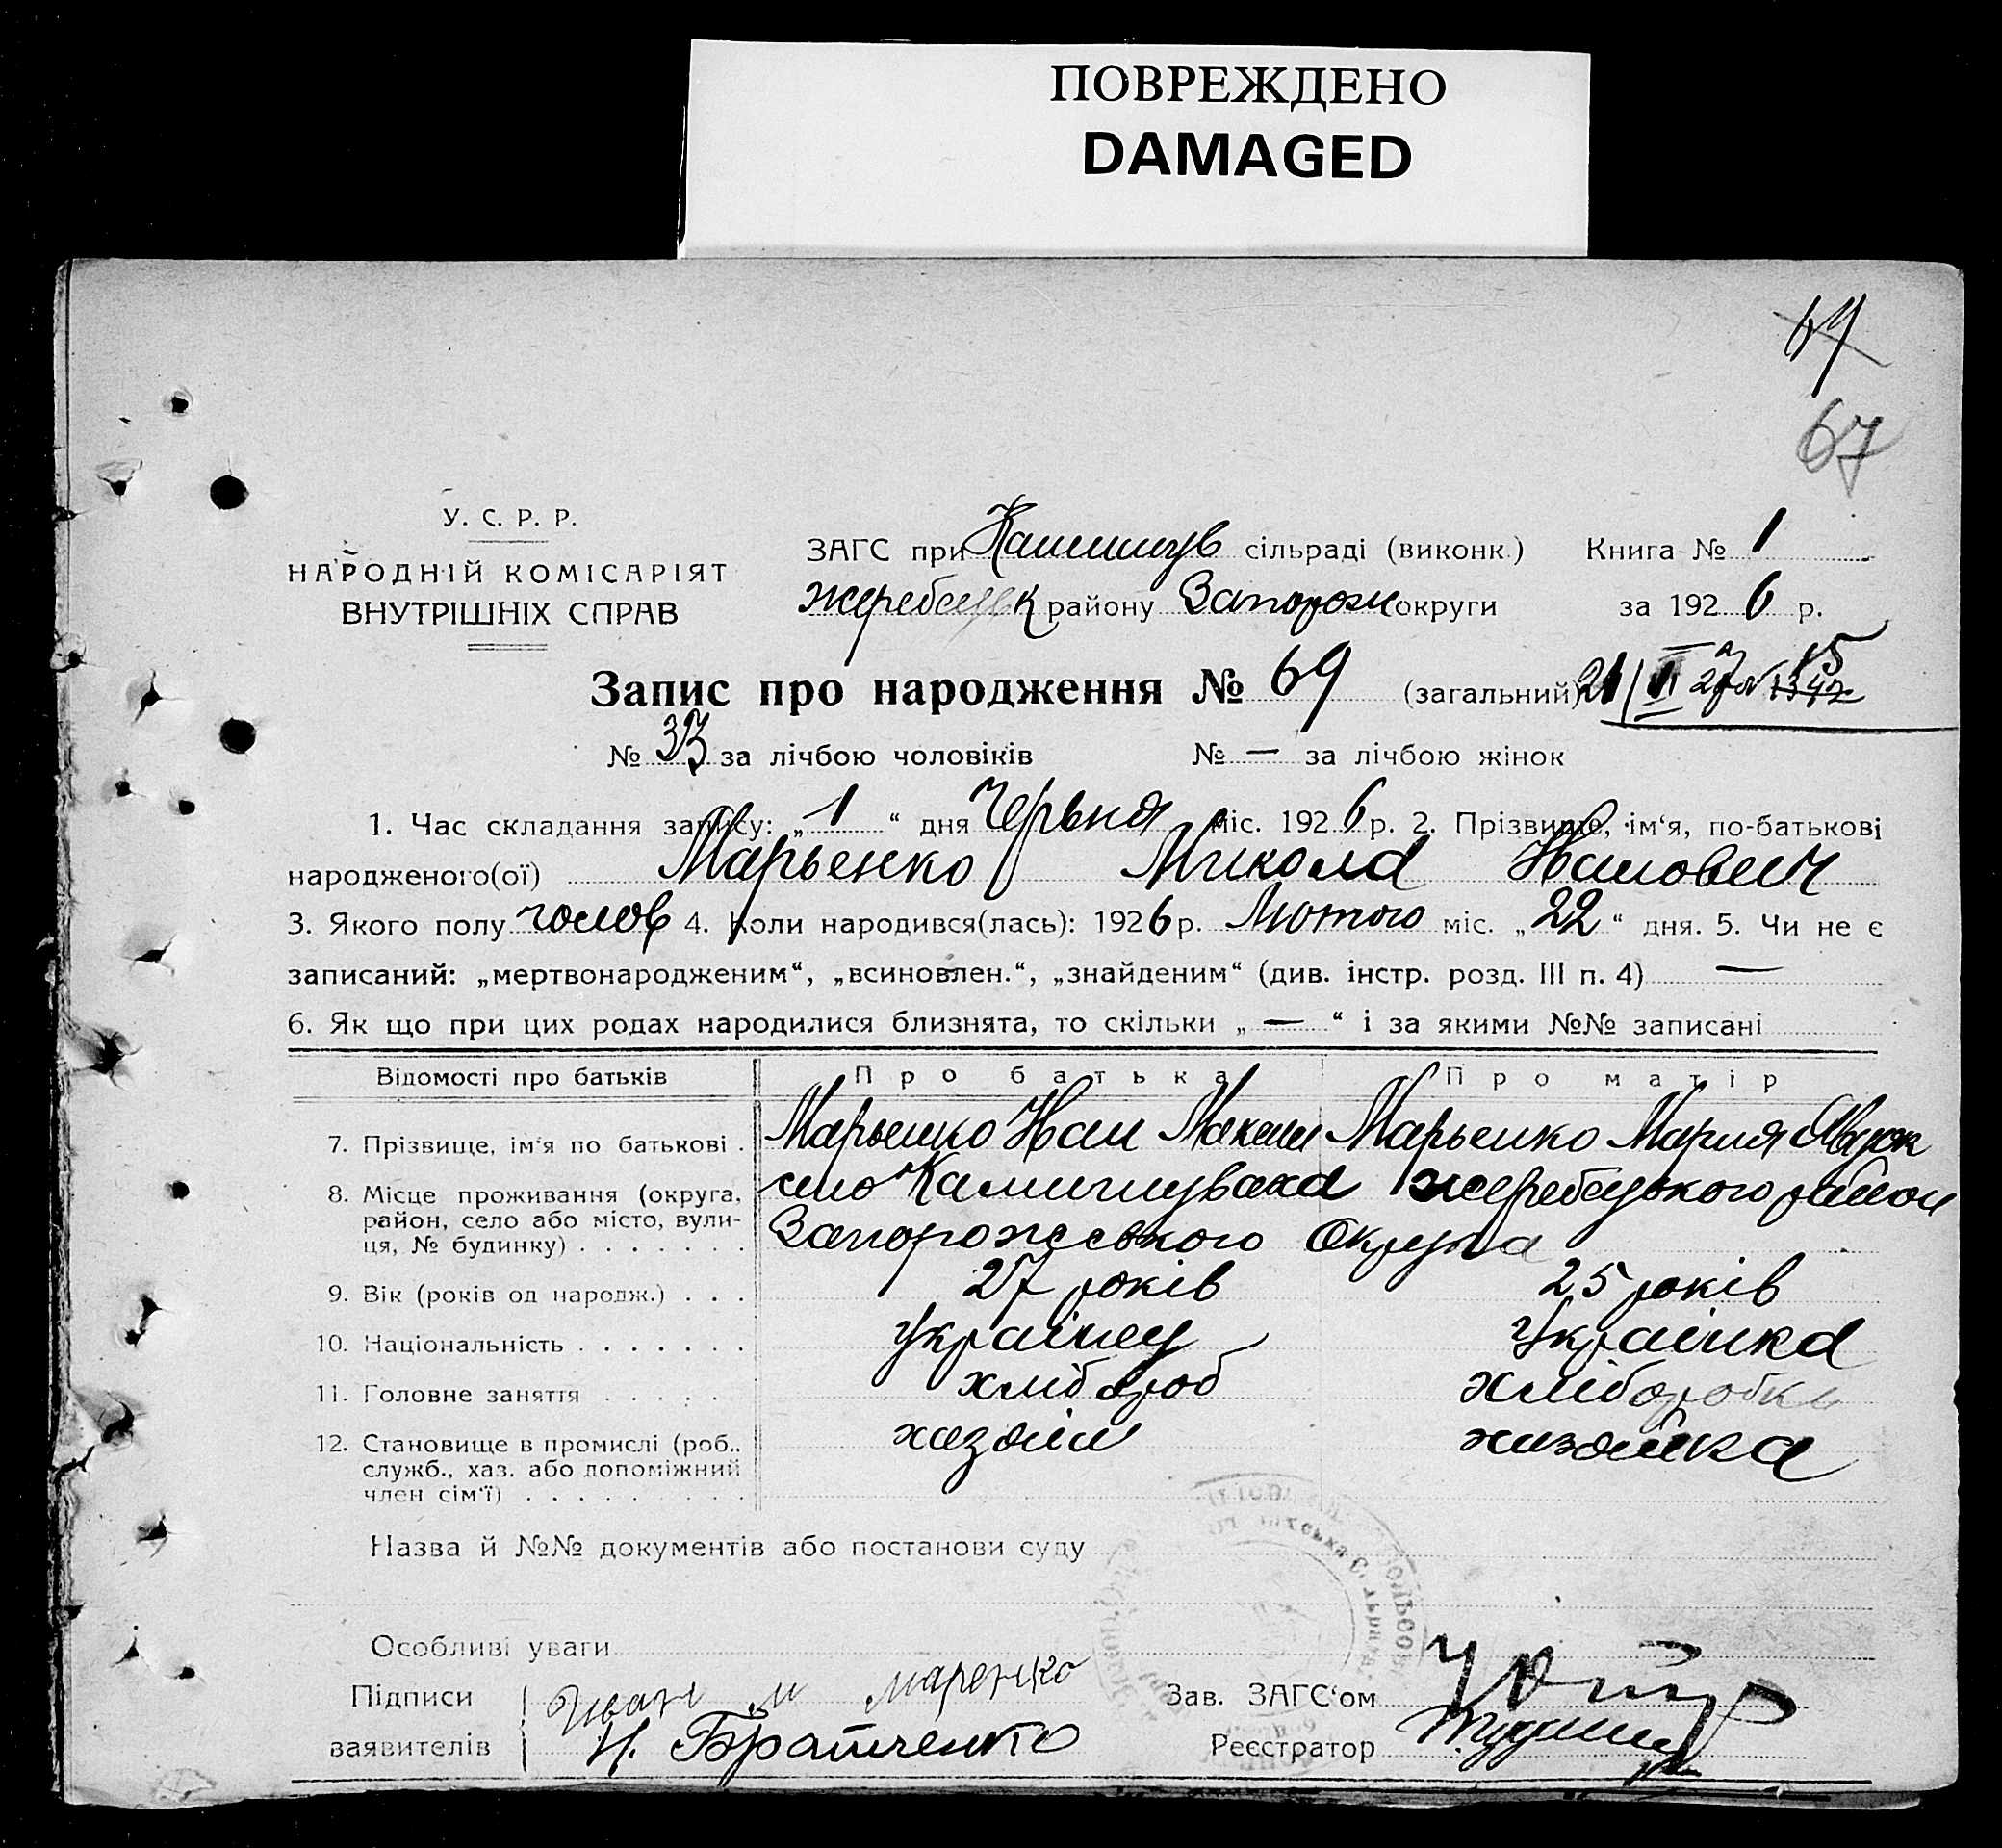 ПОВРЕЖДЕНО
DAMAGED
67
У. С. Р. Р.
НАРОДНІЙ КОМІСАРІЯТ
ВНУТРІШНІХ СПРАВ
ЗАГС при Камишув сільраді (виконк.) Книга № 1
Жеребецьк району Запорож округи за 1926 р.
Запис про народження № 69 (загальний)
№ за лічбою чоловіків № — за лічбою жінок
1. Час складання запису: „ 1 “ дня Червня міс. 1926 р. 2. Прізвище, ім‘я, по-батькові
народженого(ої) Марьенко Микола Иванович
3. Якого полу чолов 4. Коли народився(лась): 1926 р. Лютого міс. „ 22 “ дня. 5. Чи не є
записаний: „мертвонародженим“, „всиновлен.“, „знайденим“ (див. інстр. розд. III п. 4) —
6. Як що при цих родах народилися близнята, то скільки „ — “ і за якими №№ записані
Відомості про батьків Про батька Про матір
7. Прізвище, ім‘я по батькові . Марьенко Иван Максим Марьенко Мария
8. Місце проживання (округа, село Камишуваха Жеребецького район
район, село або місто, вули-
ця, № будинку) . . . . . . . Запорожського Округа
9. Вік (років од народж.) . . . 27 років 25 років
10. Національність . . . . . . . українец українка
11. Головне заняття . . . . . хлібороб хліборобка
12. Становище в промислі (роб., хазяін хазяйка
служб., хаз. або допоміжний
член сім‘ї) . . . . . . . . .
Назва й №№ документів або постанови суду
Особливі уваги
Підписи Иван м маренко Зав. ЗАГС‘ом
заявителів И. Братченко Реєстратор